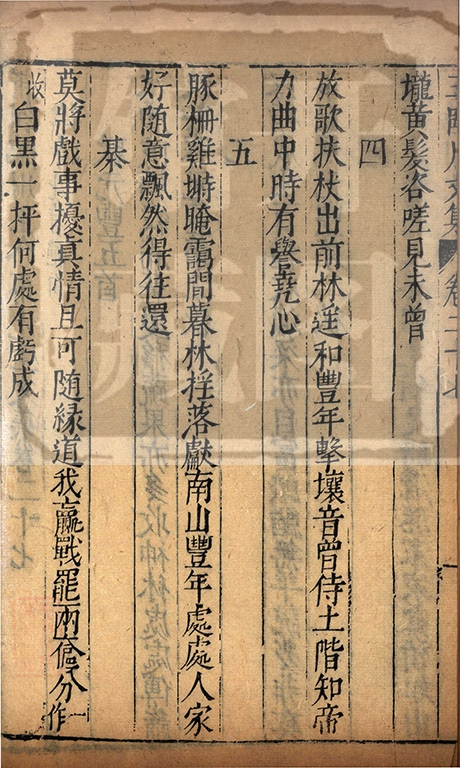 臨川文集卷二十七
壠黃髮咨嗟見未曾
四
放歌扶杖出前林遙和豐年擊壤音曾侍土階知帝
力曲中時有譽堯心
五
豚柵雞塒晻靄間暮林搖落獻南山豐年處處人家
好隨意飄然得往還
棊
莫將戲事擾真情且可隨緣道我贏戰罷兩奩分一作
收白黑一枰何處有虧成